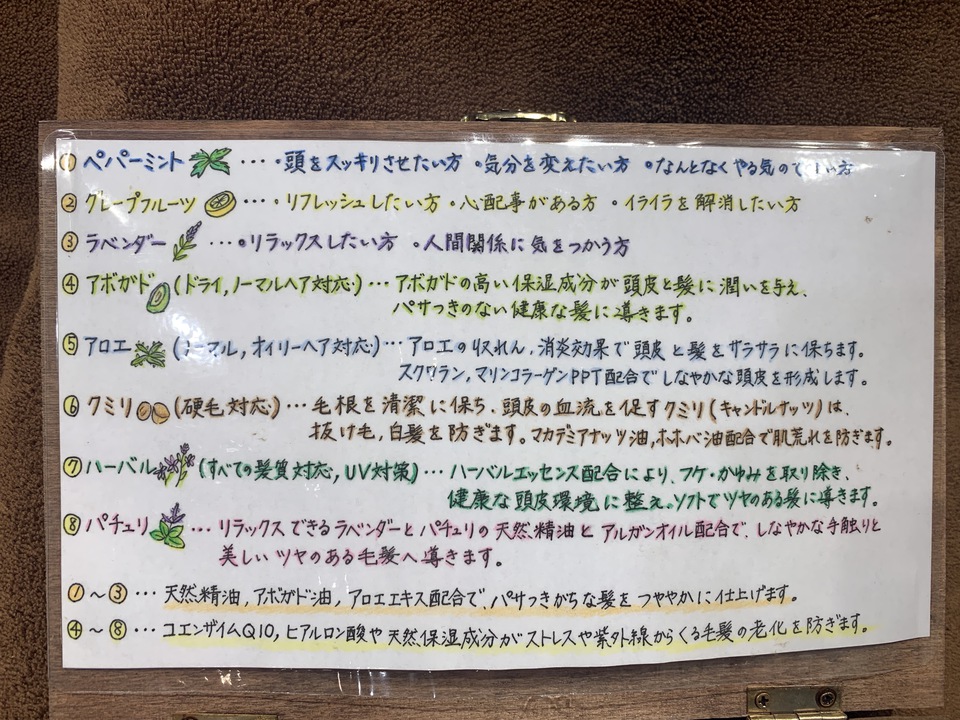 ① ペパーミント … ・頭をスッキリさせたい方 ・気分を変えたい方 ・なんとなくやる気ので い方
② グレープフルーツ … ・リフレッシュしたい方 ・心配事がある方 ・イライラを解消したい方
③ ラベンダー … ・リラックスしたい方 ・人間関係に気をつかう方
④ アボガド (ドライ,ノーマルヘア対応) … アボガドの高い保湿成分が頭皮と髪に潤いを与え、
パサつきのない健康な髪に導きます。
⑤ アロエ (ノーマル,オイリーヘア対応) … アロエの収れん,消炎効果で頭皮と髪をサラサラに保ちます。
スクワラン,マリンコラーゲンPPT配合でしなやかな頭皮を形成します。
⑥ クミリ (硬毛対応) … 毛根を清潔に保ち、頭皮の血流を促すクミリ(キャンドルナッツ)は、
抜け毛,白髪を防ぎます。マカデミアナッツ油,ホホバ油配合で肌荒れを防ぎます。
⑦ ハーバル (すべての髪質対応,UV対策) … ハーバルエッセンス配合により、フケ・かゆみを取り除き、
健康な頭皮環境に整え。ソフトでツヤのある髪に導きます。
⑧ パチュリ … リラックスできるラベンダーとパチュリの天然精油とアルガンオイル配合で、しなやかな手触りと
美しいツヤのある毛髪へ導きます。
①～③ … 天然精油,アボガド油,アロエエキス配合で、パサつきがちな髪をつややかに仕上げます。
④～⑧ … コエンザイムQ10,ヒアルロン酸や天然保湿成分がストレスや紫外線からくる毛髪の老化を防ぎます。